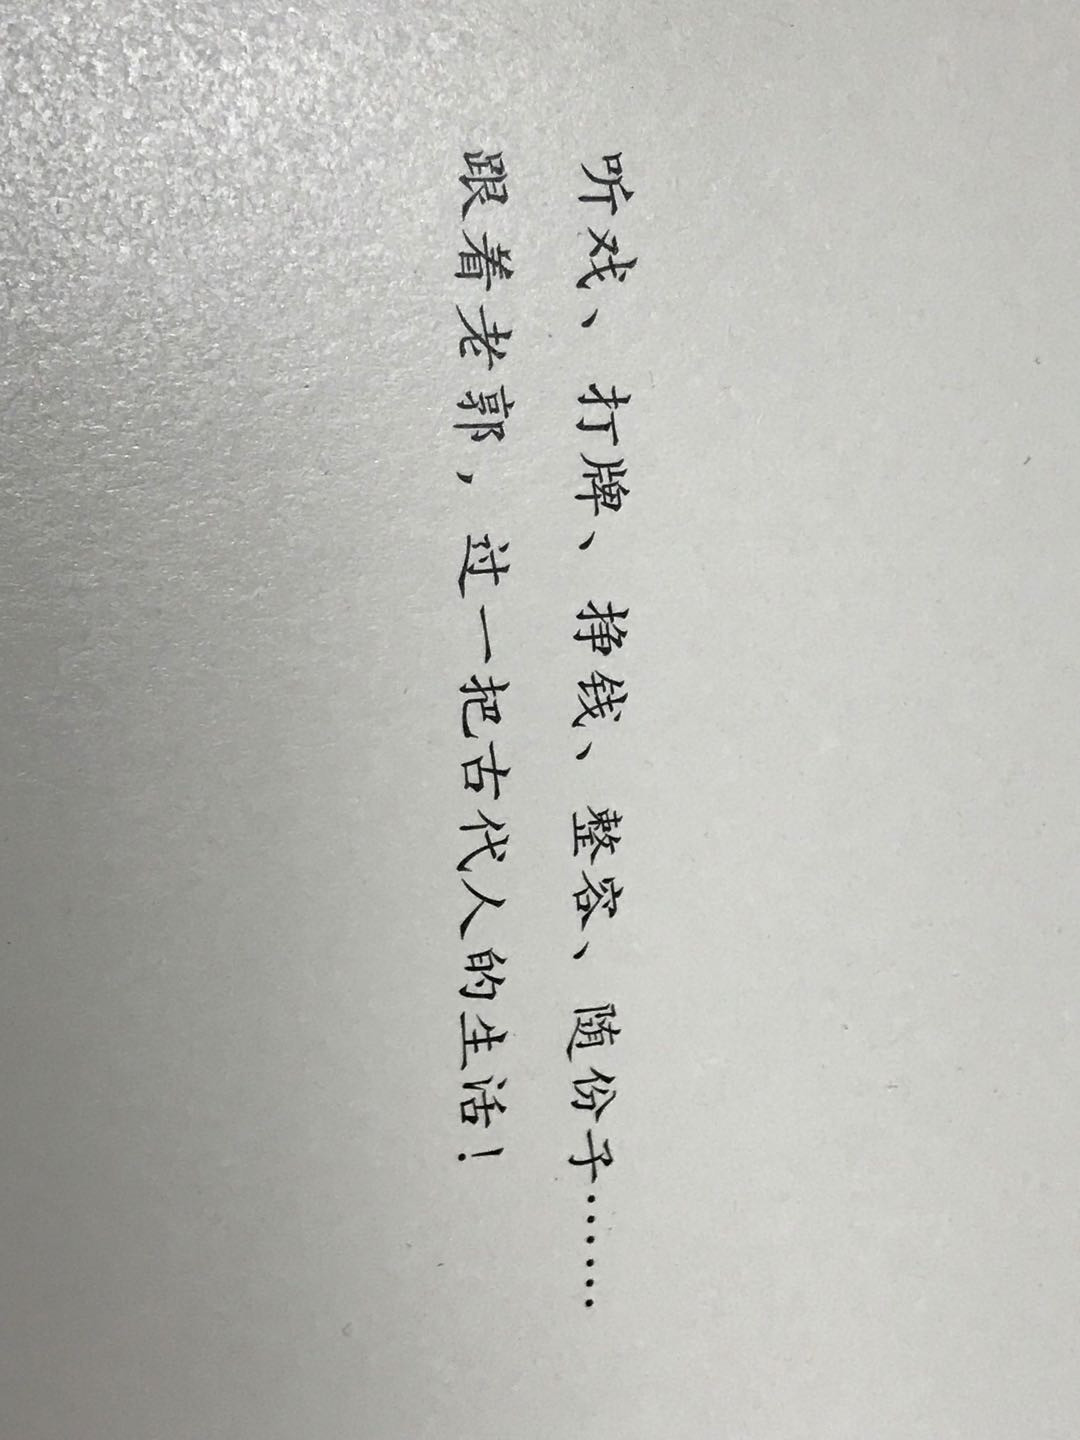 听戏、打牌、挣钱、整容、随份子······
跟着老郭，过一把古代人的生活！